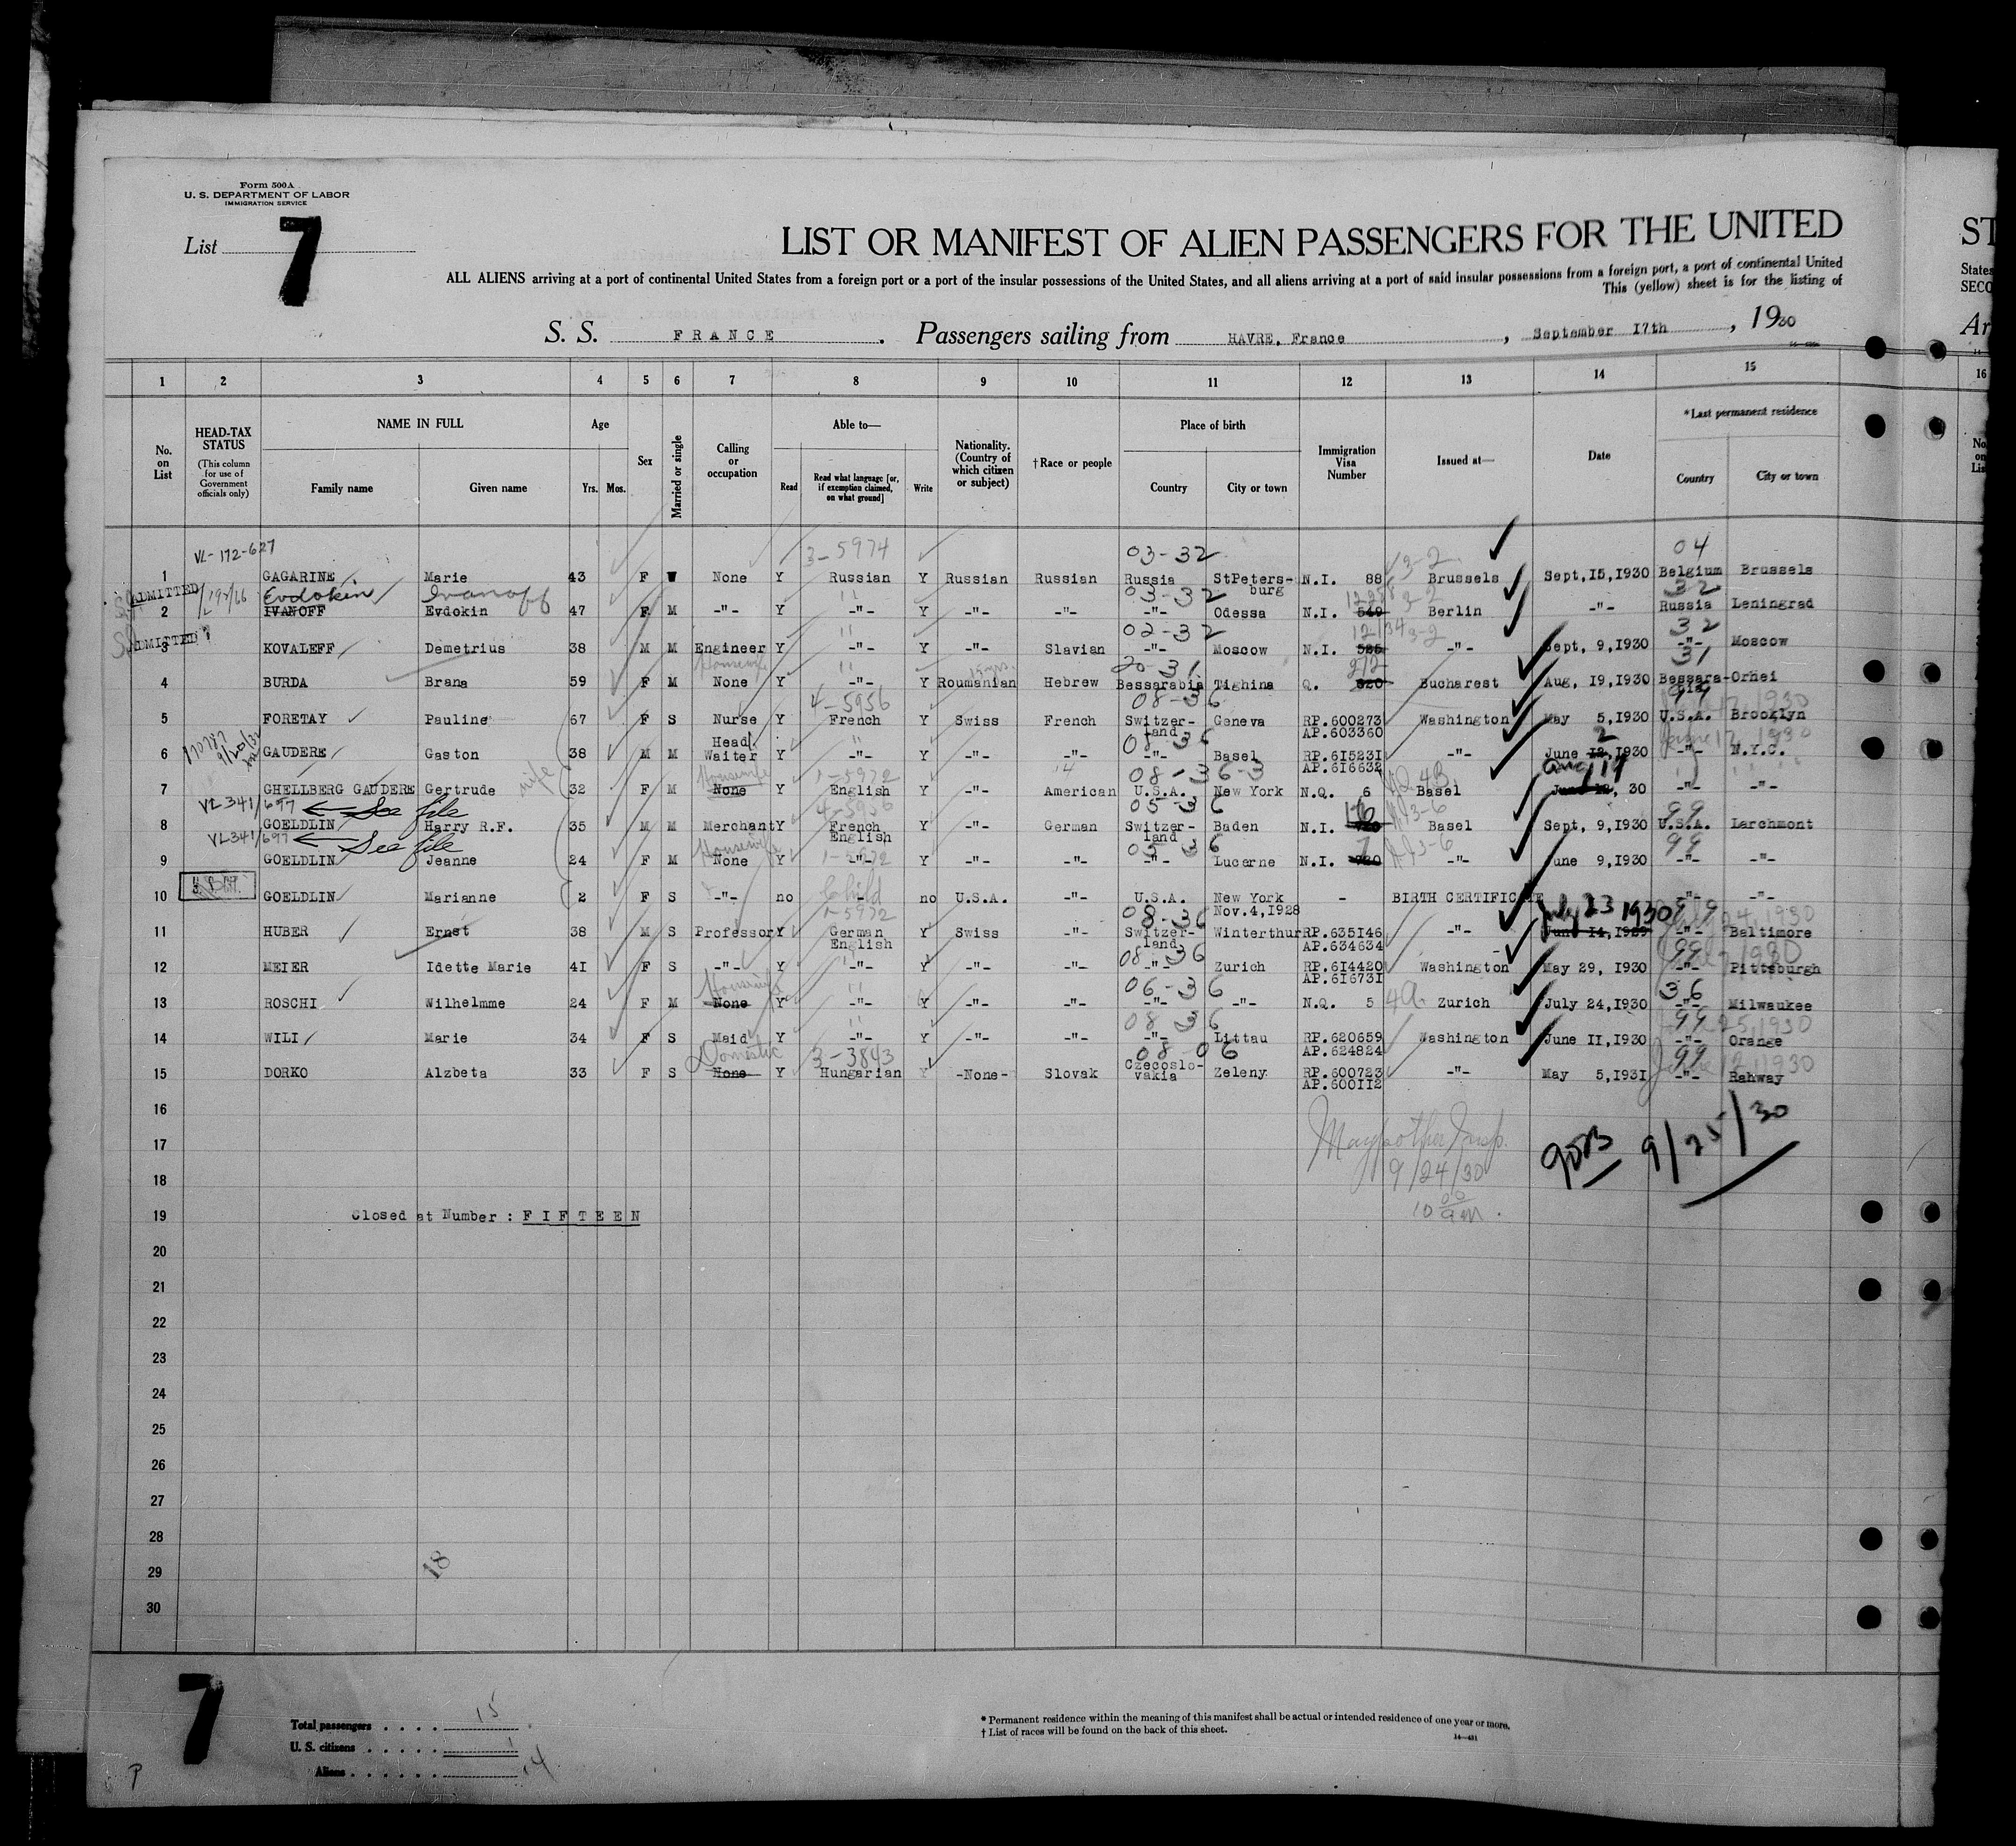 Form 500A
U. S. DEPARTMENT OF LABOR
IMMIGRATION SERVICE
List 7
LIST OR MANIFEST OF ALIEN PASSENGERS FOR THE UNITED ST
ALL ALIENS arriving at a port of continental United States from a foreign port or a port of the insular possessions of the United States, and all aliens arriving at a port of said insular possessions from a foreign port, a port of continental United States
This (yellow) sheet is for the listing of SECO
S. S. FRANCE. Passengers sailing from HAVRE, France, September 17th, 1930 Ar
1 2 3 4 5 6 7 8 9 10 11 12 13 14 15 16
No. on List
HEAD-TAX STATUS
(This column for use of Government officials only)
NAME IN FULL
Family name Given name
Age
Yrs. Mos.
Sex
Married or single
Calling or occupation
Able to—
Read Read what language [or, if exemption claimed, on what ground] Write
Nationality. (Country of which citizen or subject)
†Race or people
Place of birth
Country City or town
Immigration Visa Number
Issued at—
Date
*Last permanent residence
Country City or town
No. on List
VL-172-627 3-5974 03-32 3-2 04
1 GAGARINE Marie 43 F W None Y Russian Y Russian Russian Russia StPetersburg N.I. 88 Brussels Sept,15,1930 Belgium Brussels
ADMITTED Evdokin Ivanoff 03-32 3-2 32
2 IVANOFF Evdokin 47 F M -"- Y -"- Y -"- -"- -"- Odessa N.I. 549 Berlin -"- Russia Leningrad
ADMITTED 02-32 12134 3-2 32
3 KOVALEFF Demetrius 38 M M Engineer Y -"- Y -"- Slavian -"- Moscow N.I. 525 -"- Sept, 9,1930 -"- Moscow
Housewife 20-31 272 31
4 BURDA Brana 59 F M None Y -"- Y Roumanian Hebrew Bessarabia Tighina Q. 320 Bucharest Aug, 19,1930 Bessarabia Orhei
4-5956 08-36 99
5 FORETAY Pauline 67 F S Nurse Y French Y Swiss French Switzerland Geneva RP.600273 AP.603360 Washington May 5,1930 U.S.A. Brooklyn
9/20/32 08 36 2 June 12, 1930
6 GAUDERE Gaston 38 M M Head Waiter Y -"- Y -"- -"- -"- Basel RP.615231 AP.616632 -"- June 12,1930 -"- N.Y.C.
wife Housewife 1-5972 08-36-3 Aug 19
7 GHELLBERG GAUDERE Gertrude 32 F M None Y English Y -"- American U.S.A. New York N.Q. 6 Basel June 12, 30 -"- -"-
VL341/697 ← See file 4-5956 05-36 99
8 GOELDLIN Harry R.F. 35 M M Merchant Y French English Y -"- German Switzerland Baden N.I. Basel Sept, 9,1930 U.S.A. Larchmont
VL341/697 ← See file Housewife 1-5972 05 36 99
9 GOELDLIN Jeanne 24 F M None Y -"- Y -"- -"- -"- Lucerne N.I. -"- June 9,1930 -"- -"-
Child
10 GOELDLIN Marianne 2 F S -"- no - no U.S.A. -"- U.S.A. New York Nov.4,1928 - BIRTH CERTIFICATE -"- -"-
1-5972 08-36 July 23 1930 99
11 HUBER Ernst 38 M S Professor Y German English Y Swiss -"- Switzerland Winterthur RP.635146 AP.634634 -"- June 14,1929 -"- Baltimore
08-36 99
12 MEIER Idette Marie 41 F S -"- Y -"- Y -"- -"- -"- Zurich RP.614420 AP.616731 Washington May 29, 1930 -"- Pittsburgh
Housewife 06-36 36
13 ROSCHI Wilhelmme 24 F M None Y -"- Y -"- -"- -"- -"- N.Q. 5 4a Zurich July 24,1930 -"- Milwaukee
08 36 99
14 WILI Marie 34 F S Maid Y -"- Y -"- -"- -"- Littau RP.620659 AP.624824 Washington June 11,1930 -"- Orange
Domestic 3-3843 08 06 99
15 DORKO Alzbeta 33 F S None Y Hungarian Y -None- Slovak Czecoslovakia Zeleny RP.600723 AP.600112 -"- May 5,1931 -"- Rahway
16
17 9/25/30
18 9/24/30
19 Closed at Number : FIFTEEN 10 00 am.
20
21
22
23
24
25
26
27
28
29 18
30
7
Total passengers . . . . 15
U. S. citizens . . . . . 1
Aliens . . . . . . 14
* Permanent residence within the meaning of this manifest shall be actual or intended residence of one year or more.
† List of races will be found on the back of this sheet.
14—431
P